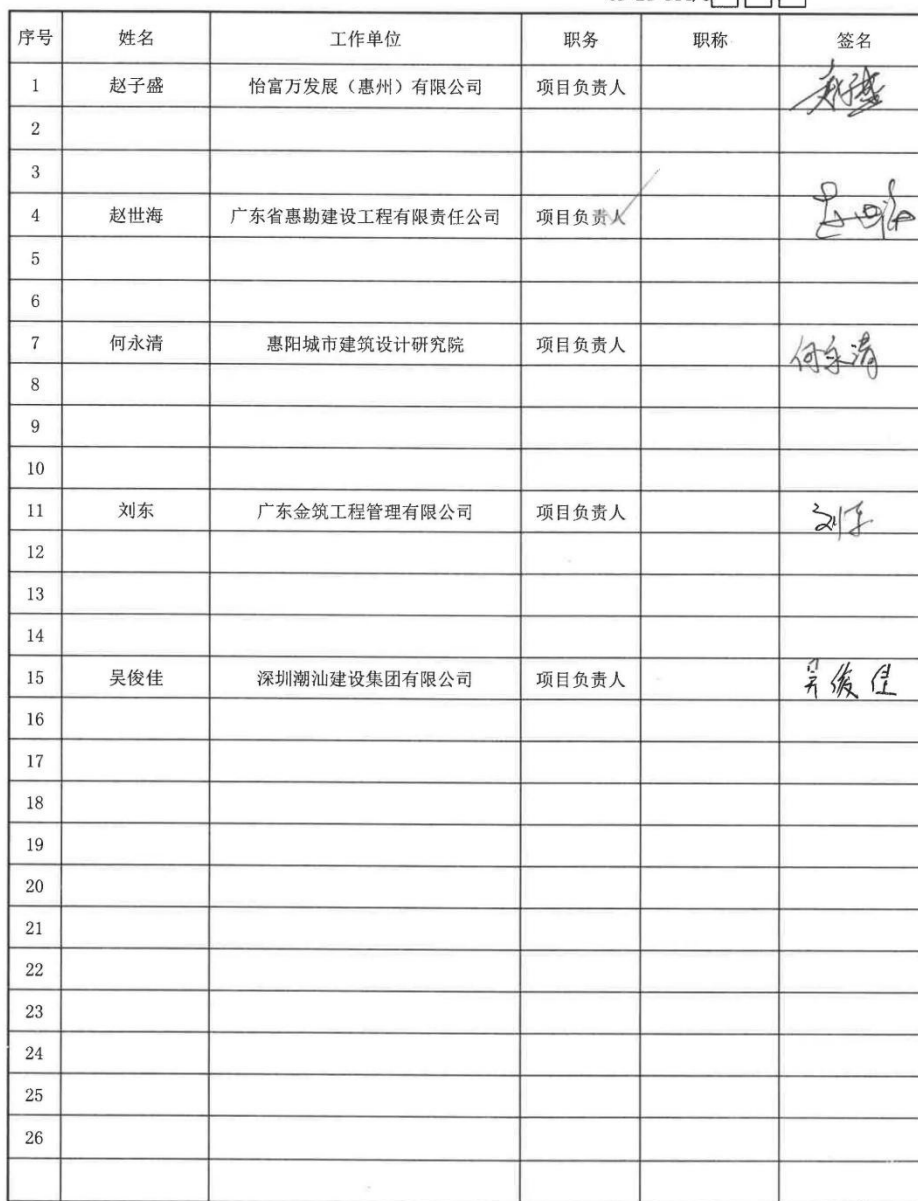 序号 姓名 工作单位 职务 职称 签名
1 赵子盛 怡富万发展（惠州）有限公司 项目负责人
2
3
4 赵世海 广东省惠勘建设工程有限责任公司 项目负责人 赵世海
5
6
7 何永清 惠阳城市建筑设计研究院 项目负责人 何永清
8
9
10
11 刘东 广东金筑工程管理有限公司 项目负责人 刘东
12
13
14
15 吴俊佳 深圳潮汕建设集团有限公司 项目负责人 吴俊佳
16
17
18
19
20
21
22
23
24
25
26